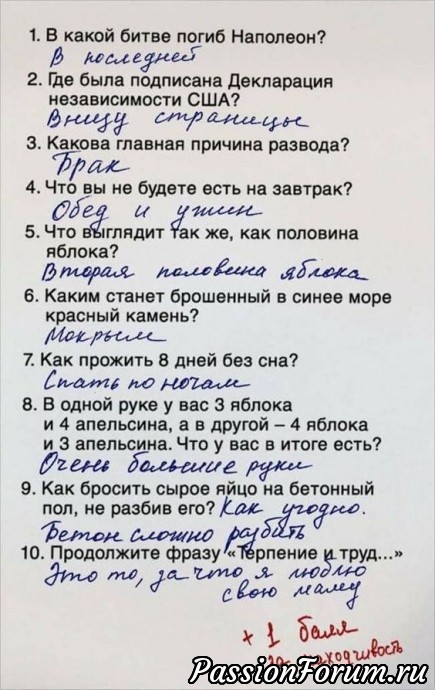 1. В какой битве погиб Наполеон?
В последней
2. Где была подписана Декларация
независимости США?
Внизу страницы
3. Какова главная причина развода?
Брак
4. Что вы не будете есть на завтрак?
Обед и ужин
5. Что выглядит так же, как половина
яблока?
Вторая половина яблока
6. Каким станет брошенный в синее море
красный камень?
Мокрым
7. Как прожить 8 дней без сна?
Спать по ночам
8. В одной руке у вас 3 яблока
и 4 апельсина, а в другой – 4 яблока
и 3 апельсина. Что у вас в итоге есть?
Очень большие руки
9. Как бросить сырое яйцо на бетонный
пол, не разбив его? Как угодно.
Бетон сложно разбить
10. Продолжите фразу «Терпение и труд...»
Это то, за что я люблю
свою маму
+ 1 балл
за находчивость
PassionForum.ru